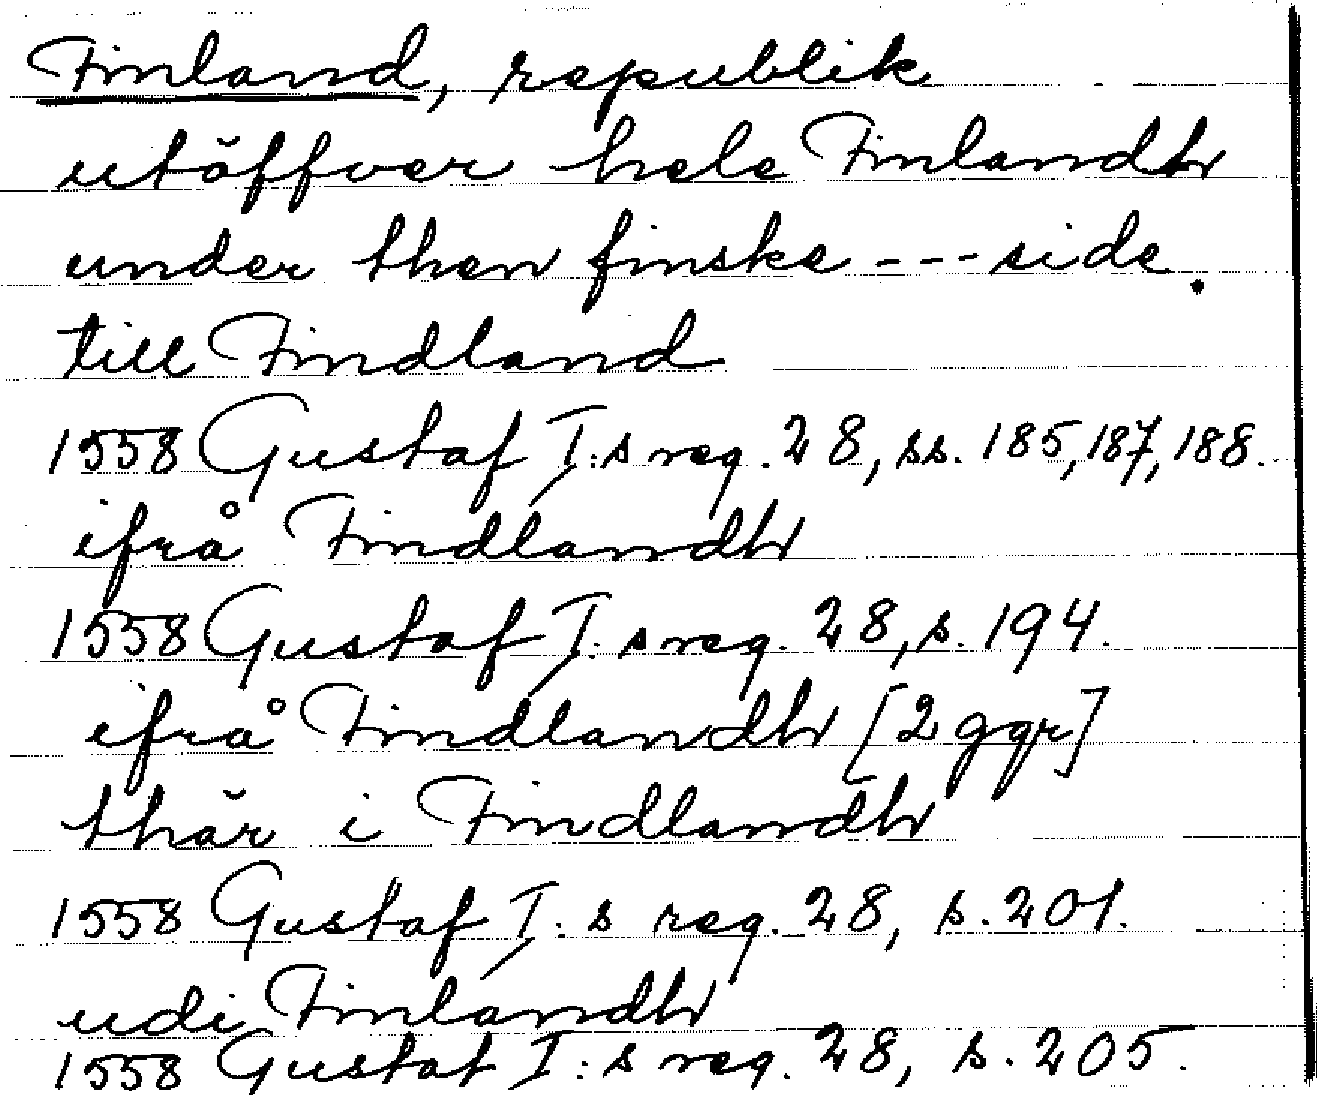 Finland, republik
utöffver hele Finlandh
under then finske --- side.
till Findland
1558 Gustaf I:s reg. 28, ss. 185, 187, 188.
ifrå Findlandh
1558 Gustaf I:s reg. 28, s. 194.
ifrå Findlandh [2 ggr]
thär i Findlandh
1558 Gustaf I:s reg. 28, s. 201.
udi Finlandh
1558 Gustaf I:s reg. 28, s. 205.